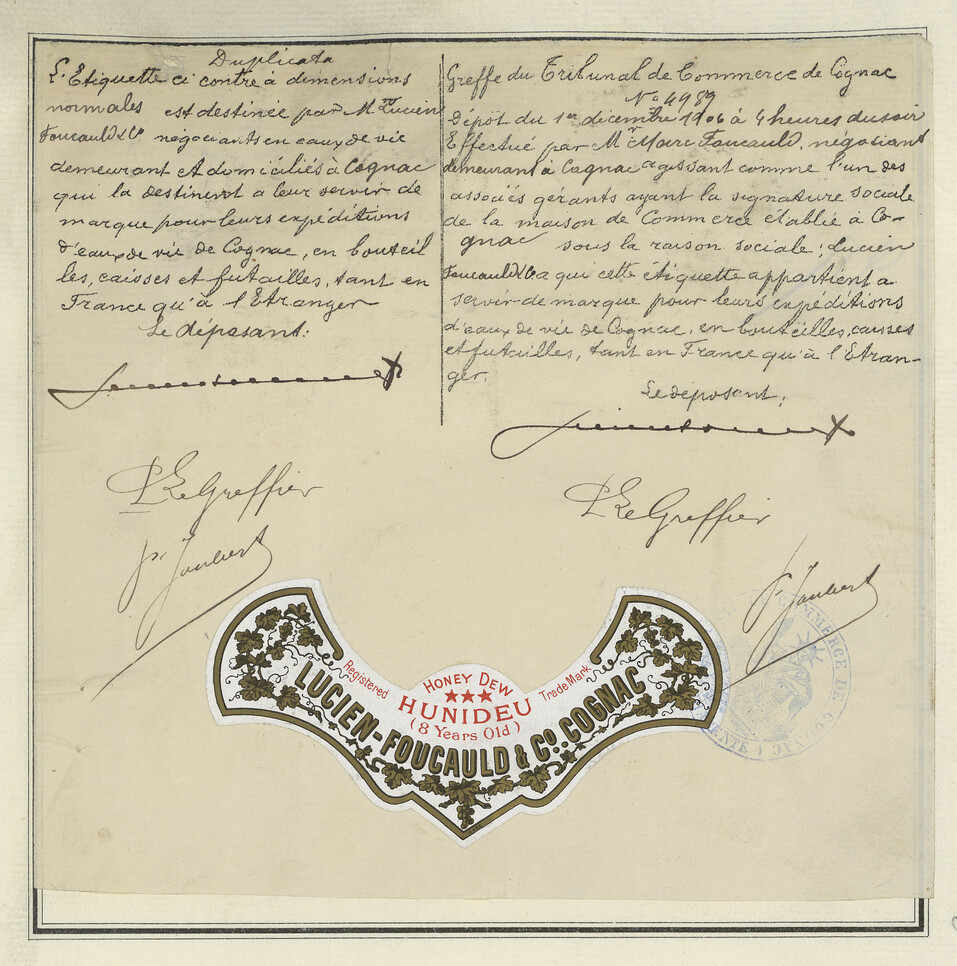 Duplicata
L'Etiquette ci contre à dimensions
normales est destinée par Mr Lucien
Foucauld & Co négociants en eaux de vie
demeurant et domiciliés à Cognac
qui la destinent a leur servir de
marque pour leurs expéditions
d'eaux de vie de Cognac, en bouteil
les, caisses et futailles, tant en
France qu'à l'Etranger
Le déposant:
P Le Greffier
Joubert
Greffe du Tribunal de Commerce de Cognac
No 4989
Dépôt du 1er décembre 1906 à 4 heures du soir
Effectué par Mr Marc Foucauld, négociant
demeurant à Cognac agissant comme l'un des
associés gérants ayant la signature sociale
de la maison de Commerce établie à Co-
gnac sous la raison sociale; Lucien
Foucauld & Co a qui cette étiquette appartient a
servir de marque pour leurs expéditions
d'eaux de vie de Cognac, en bouteilles, caisses
et futailles, tant en France qu'à l'Etran-
ger.
Le déposant;
P Le Greffier
Joubert
Registered
HONEY DEW
Trade Mark
HUNIDEU
(8 Years Old)
LUCIEN-FOUCAULD & Co. COGNAC
COMMERCE DE COGNAC